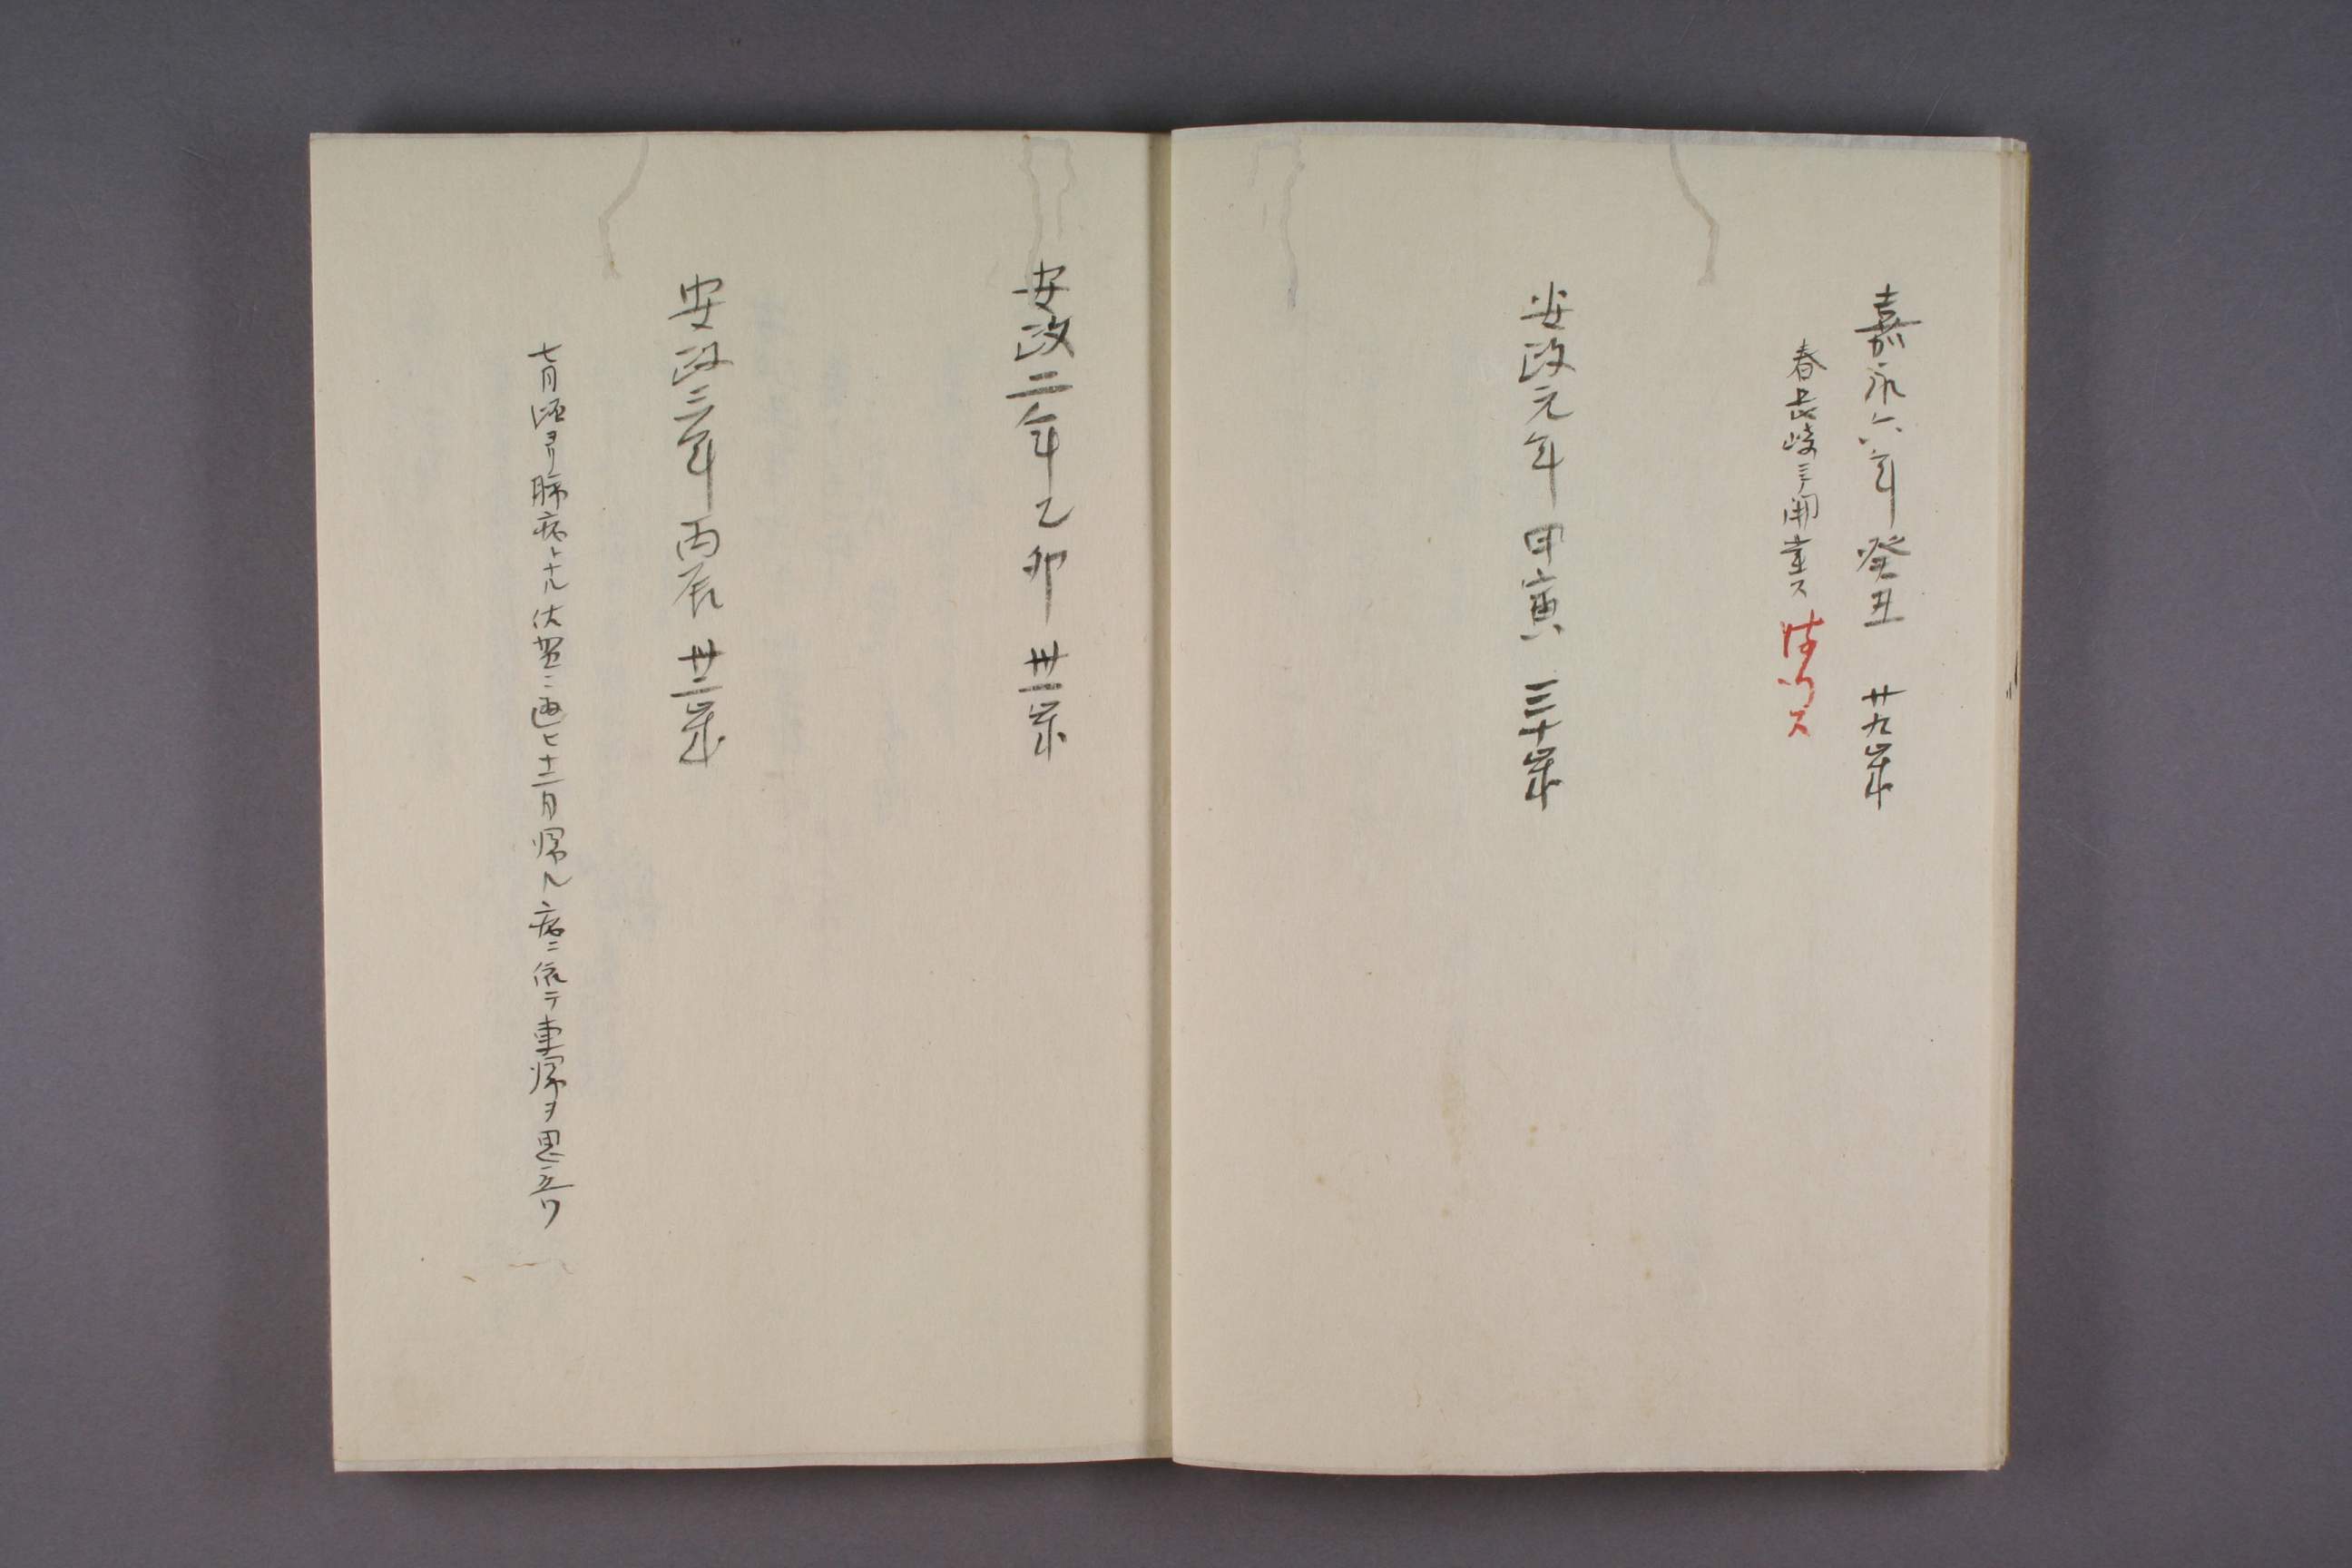 嘉永六年癸丑 廿九歳
春長崎ニテ開業ス
安政元年甲寅 三十歳
安政二年乙卯 卅一歳
安政三年丙辰 卅二歳
七月頃ヨリ肺病トナル佐賀ニ遊ヒ十二月帰ル病ニ依テ東帰ヲ思立ツ